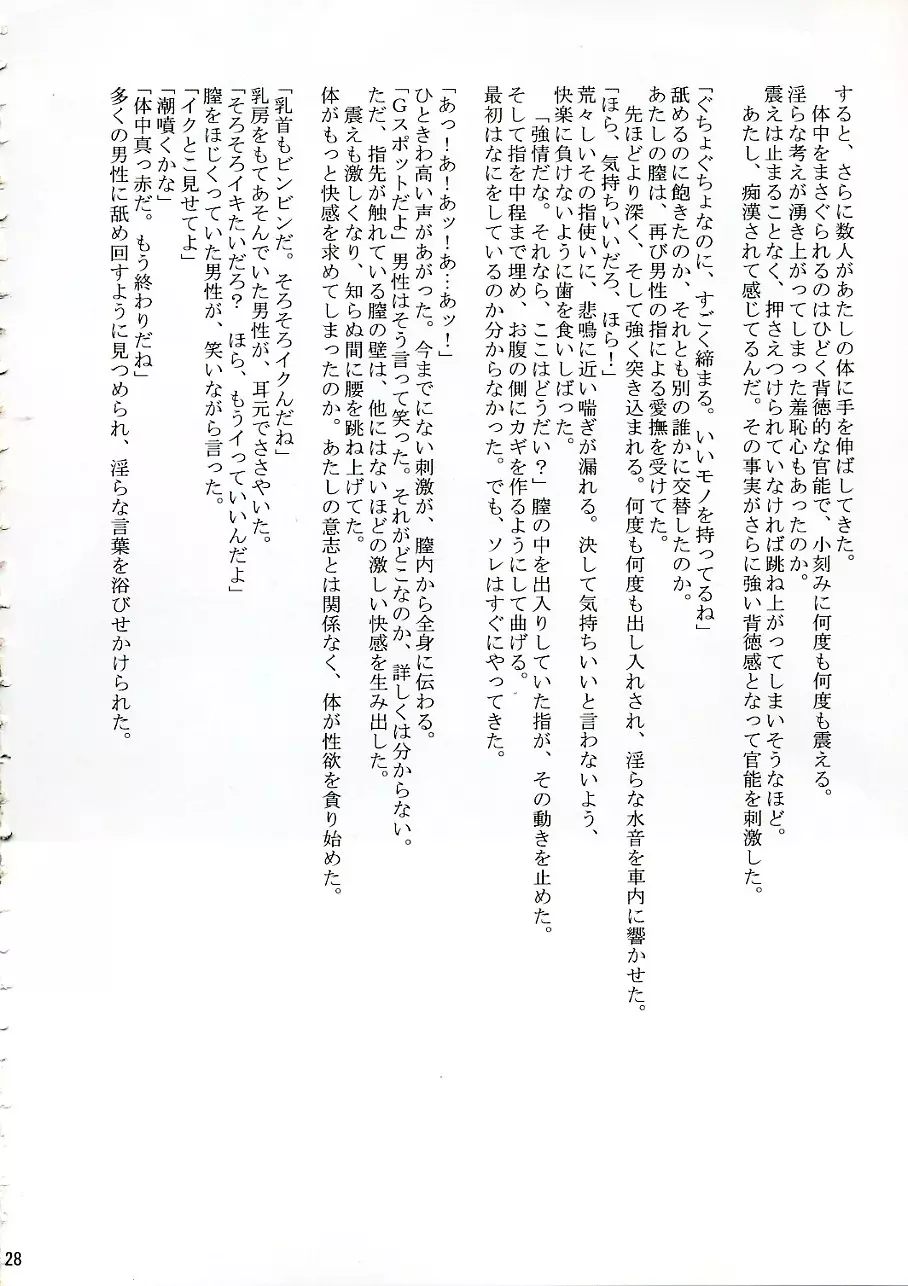 すると、さらに数人があたしの体に手を伸ばしてきた。
体中をまさぐられるのはひどく背徳的な官能で、小刻みに何度も何度も震える。
淫らな考えが湧き上がってしまった羞恥心もあったのか。
震えは止まることなく、押さえつけられていなければ跳ね上がってしまいそうなほど。
あたし、痴漢されて感じてるんだ。その事実がさらに強い背徳感となって官能を刺激した。
「ぐちょぐちょなのに、すごく締まる。いいモノを持ってるね」
舐めるのに飽きたのか、それとも別の誰かに交替したのか。
あたしの膣は、再び男性の指による愛撫を受けてた。
先ほどより深く、そして強く突き込まれる。何度も何度も出し入れされ、淫らな水音を車内に響かせた。
「ほら、気持ちいいだろ、ほら！」
荒々しいその指使いに、悲鳴に近い喘ぎが漏れる。決して気持ちいいと言わないよう、
快楽に負けないように歯を食いしばった。
「強情だな。それなら、ここはどうだい？」膣の中を出入りしていた指が、その動きを止めた。
そして指を中程まで埋め、お腹の側にカギを作るようにして曲げる。
最初はなにをしているのか分からなかった。でも、ソレはすぐにやってきた。
「あっ！あ！あッ！あ…あッ！」
ひときわ高い声があがった。今までにない刺激が、膣内から全身に伝わる。
「Gスポットだよ」男性はそう言って笑った。それがどこなのか、詳しくは分からない。
ただ、指先が触れている膣の壁は、他にはないほどの激しい快感を生み出した。
震えも激しくなり、知らぬ間に腰を跳ね上げてた。
体がもっと快感を求めてしまったのか。あたしの意志とは関係なく、体が性欲を貪り始めた。
「乳首もビンビンだ。そろそろイクんだね」
乳房をもてあそんでいた男性が、耳元でささやいた。
「そろそろイキたいだろ？　ほら、もうイっていいんだよ」
膣をほじくっていた男性が、笑いながら言った。
「イクとこ見せてよ」
「潮噴くかな」
「体中真っ赤だ。もう終わりだね」
多くの男性に舐め回すように見つめられ、淫らな言葉を浴びせかけられた。
28